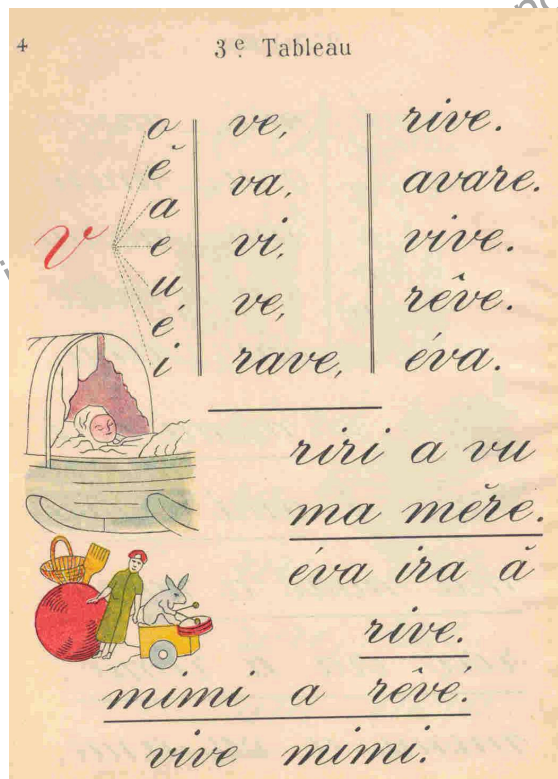 4
3e Tableau
v
o
è
a
e
u
é
i
ve,
va,
vi,
ve,
rave,
rive.
avare.
vive.
rêve.
éva.
riri a vu
ma mère.
éva ira à
rive.
mimi a rêvé.
vive mimi.